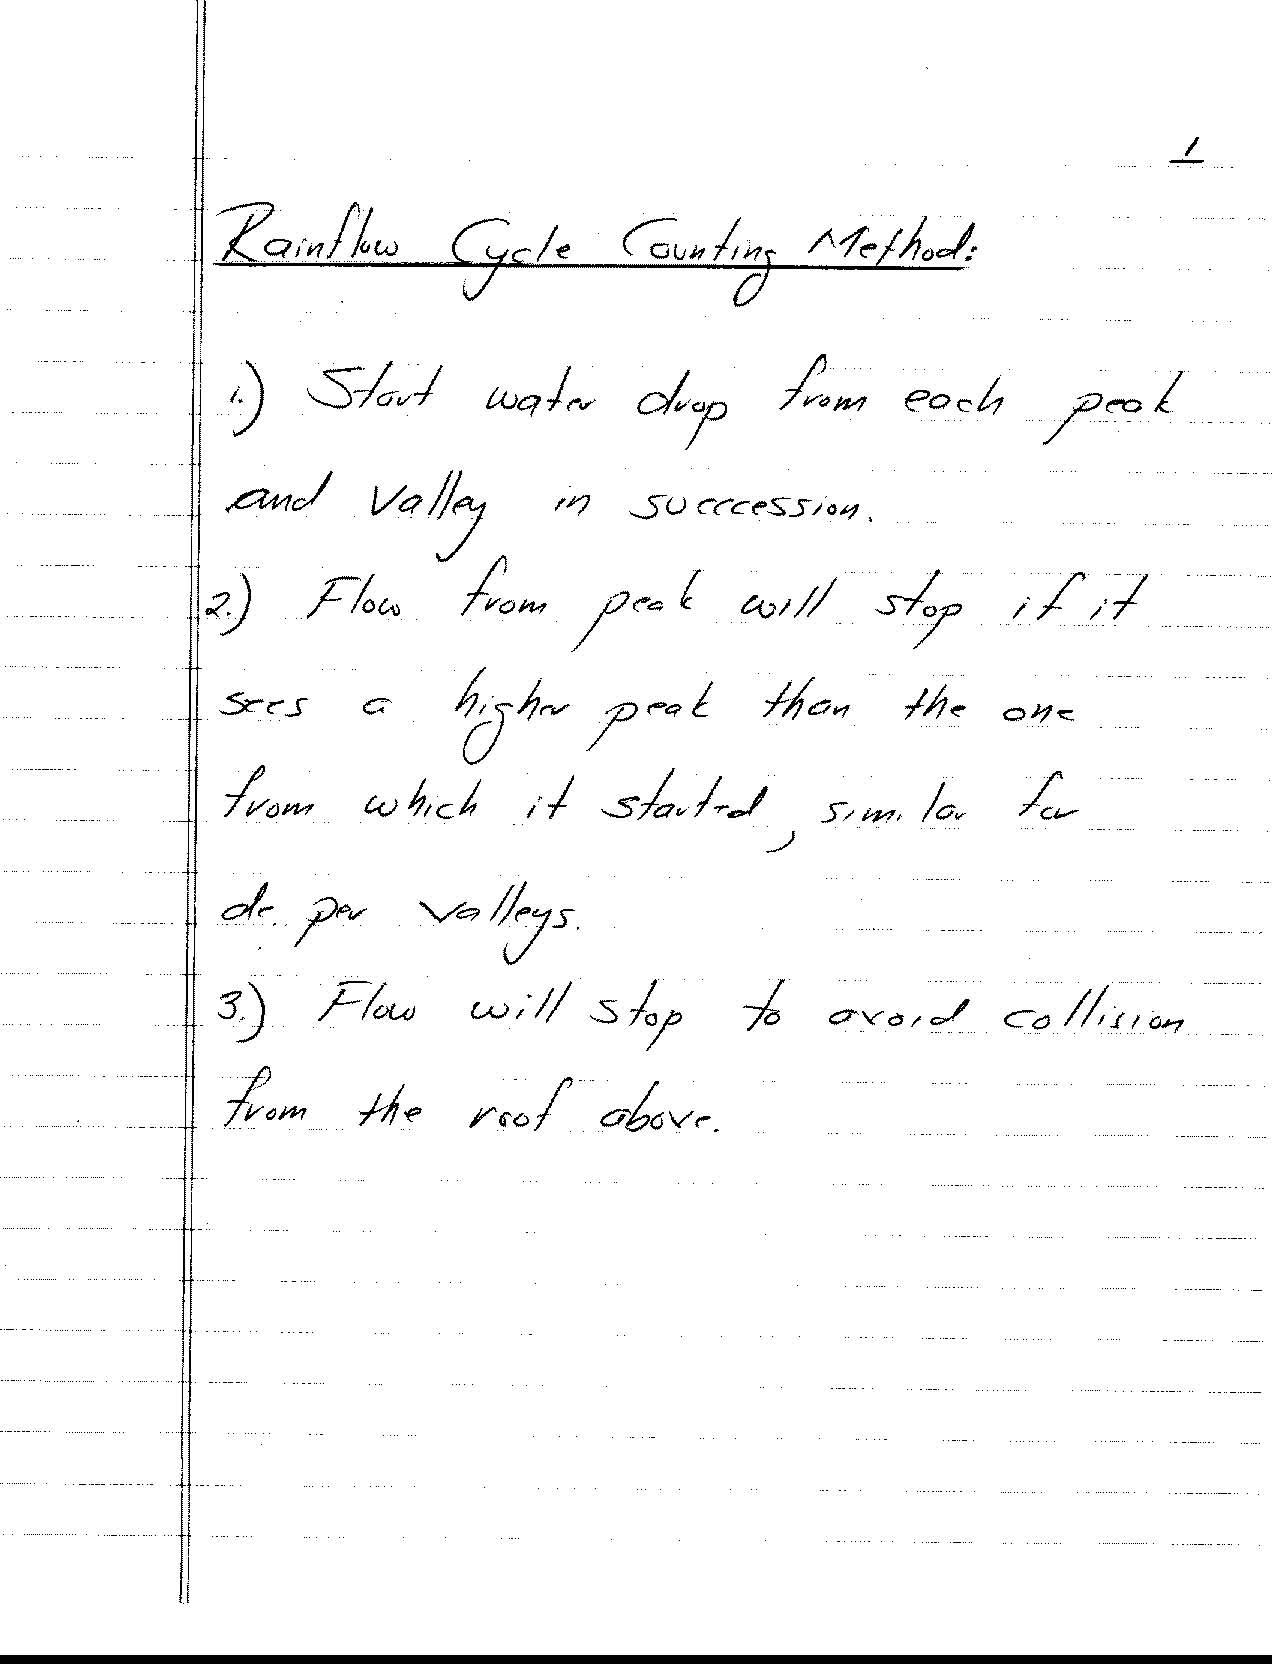 1
Rainflow Cycle Counting Method:
1.) Start water drop from each peak
and Valley in succcession.
2.) Flow from peak will stop if it
sees a higher peak than the one
from which it started, similar for
deeper valleys.
3.) Flow will stop to avoid collision
from the roof above.